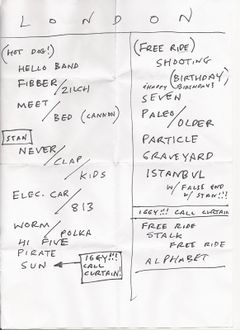 LONDON
(HOT DOG!)
HELLO BAND
FIBBER/
ZILCH
MEET/
BED (CANNON)
STAN
NEVER/
CLAP/
KIDS
ELEC. CAR/
813
WORM/
POLKA
HI FIVE
PIRATE
SUN
IGGY!!!
CALL
CURTAIN!
(FREE RIDE)
SHOOTING
(BIRTHDAY)
SEVEN
PALEO/
OLDER
PARTICLE
GRAVEYARD
ISTANBUL
W/ FALSE END
W/ STAN!!!
IGGY!!! CALL CURTAIN
FREE RIDE
STALK
FREE RIDE
ALPHABET